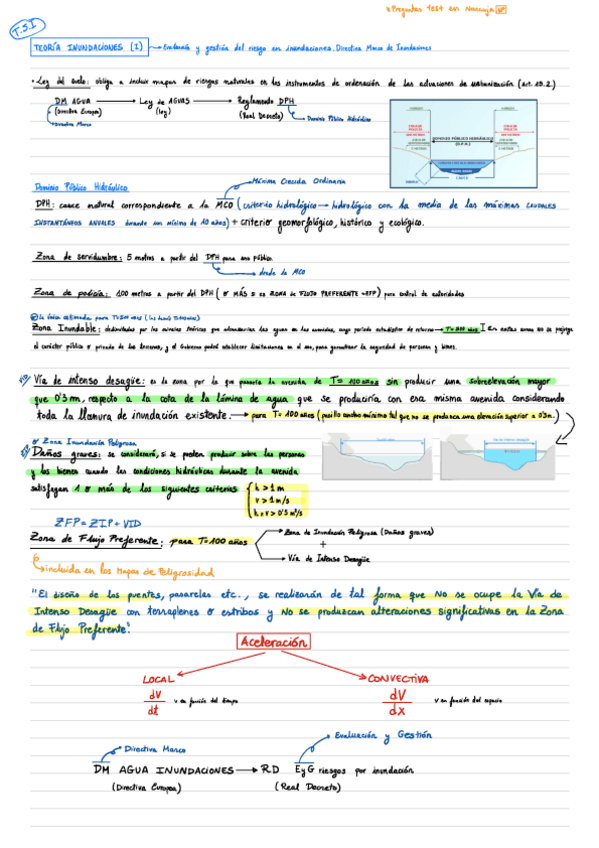 * Preguntas test en Naranja
T.S.I
TEORÍA INUNDACIONES (I) → Evaluación y gestión del riesgo en inundaciones. Directiva Marco de Inundaciones
• Ley del suelo: obliga a incluir mapas de riesgos naturales en los instrumentos de ordenación de las actuaciones de urbanización (art. 15.2)
DM AGUA → Ley de AGUAS → Reglamento DPH
(Directiva Europea) (Ley) (Real Decreto) → Dominio Público Hidráulico
→ Directiva Marco
DOMINIO PÚBLICO HIDRÁULICO
(D.P.H.)
→ Máxima Crecida Ordinaria
Dominio Público Hidráulico
DPH: cauce natural correspondiente a la MCO (criterio hidrológico → hidrológico con la media de los máximos CAUDALES
INSTANTÁNEOS ANUALES durante un mínimo de 10 años) + criterio geomorfológico, histórico y ecológico.
Zona de servidumbre: 5 metros a partir del DPH para uso público.
→ desde la MCO
Zona de policía: 100 metros a partir del DPH (o MÁS si es ZONA de FLUJO PREFERENTE -ZFP) para control de autoridades
Zona Inundable: delimitadas por los niveles teóricos que alcanzarían las aguas en las avenidas, cuyo periodo estadístico de retorno → T=500 años
el carácter público o privado de los terrenos, y el Gobierno podrá establecer limitaciones en el uso, para garantizar la seguridad de personas y bienes.
Vía de intenso desagüe: es la zona por la que pasaría la avenida de T= 100 años sin producir una sobreelevación mayor
que 0'3 m, respecto a la cota de la lámina de agua que se produciría con esa misma avenida considerando
toda la llanura de inundación existente. → para T= 100 años (pasillo ancho mínimo tal que no se produzca una elevación superior a 0'3m.)
o Zona Inundación Peligrosa
Daños graves: se considerará, si se pueden producir sobre las personas
y los bienes cuando las condiciones hidráulicas durante la avenida
satisfagan 1 o más de los siguientes criterios
h > 1 m
v > 1 m/s
h x v > 0'5 m²/s
ZFP = ZIP + VID
Zona de Flujo Preferente: para T=100 años
→ Zona de Inundación Peligrosa (Daños graves)
+
→ Vía de Intenso Desagüe
→ incluida en los Mapas de Peligrosidad
"El diseño de los puentes, pasarelas etc., se realizarán de tal forma que NO se ocupe la Vía de
Intenso Desagüe con terraplenes o estribos y NO se produzcan alteraciones significativas en la Zona
de Flujo Preferente".
Aceleración
LOCAL CONVECTIVA
dV/dt v en función del tiempo dV/dx v en función del espacio
→ Directiva Marco → Evaluación y Gestión
DM AGUA INUNDACIONES → RD EyG riesgos por inundación
(Directiva Europea) (Real Decreto)